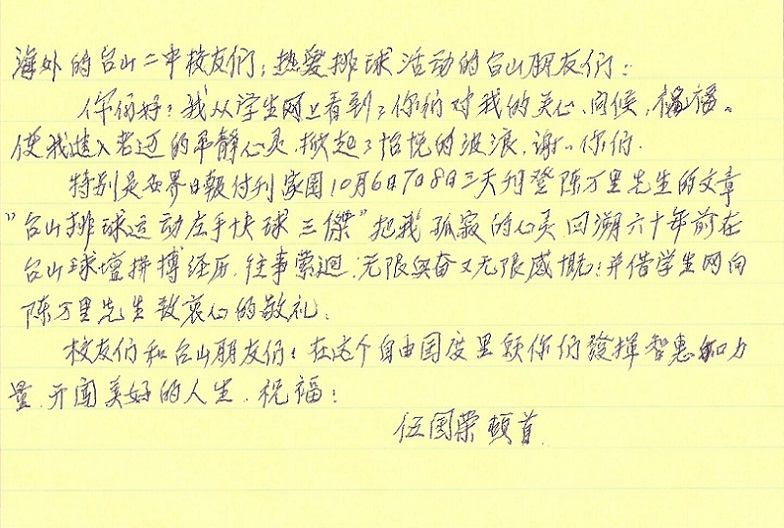 海外的台山二中校友们；热爱排球活动的台山朋友们：
你们好！我从学生网上看到了你们对我的关心、问候、祝福。
使我进入老迈的平静心灵，掀起了怡悦的波浪，谢谢你们。
特别是世界日報付刊家园10月6日7日8日三天刊登陈万里先生的文章
"台山排球运动左手快球三傑"把我孤寂的心灵回溯六十年前在
台山球壇拼搏经历，往事萦迴，无限兴奋又无限感慨！并借学生网向
陈万里先生致衷心的敬礼。
校友们和台山朋友们！在这个自由国度里愿你们發揮智惠和力
量，开闯美好的人生，祝福！
伍国荣顿首